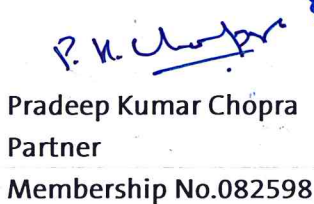 P. K. Chopra
Pradeep Kumar Chopra
Partner
Membership No.082598